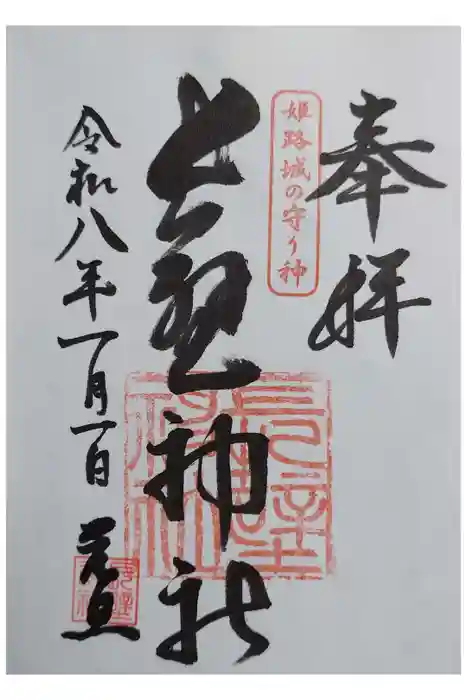 奉拝
姫路城の守り神
長壁神社
長壁神社
令和八年一月一日
元旦